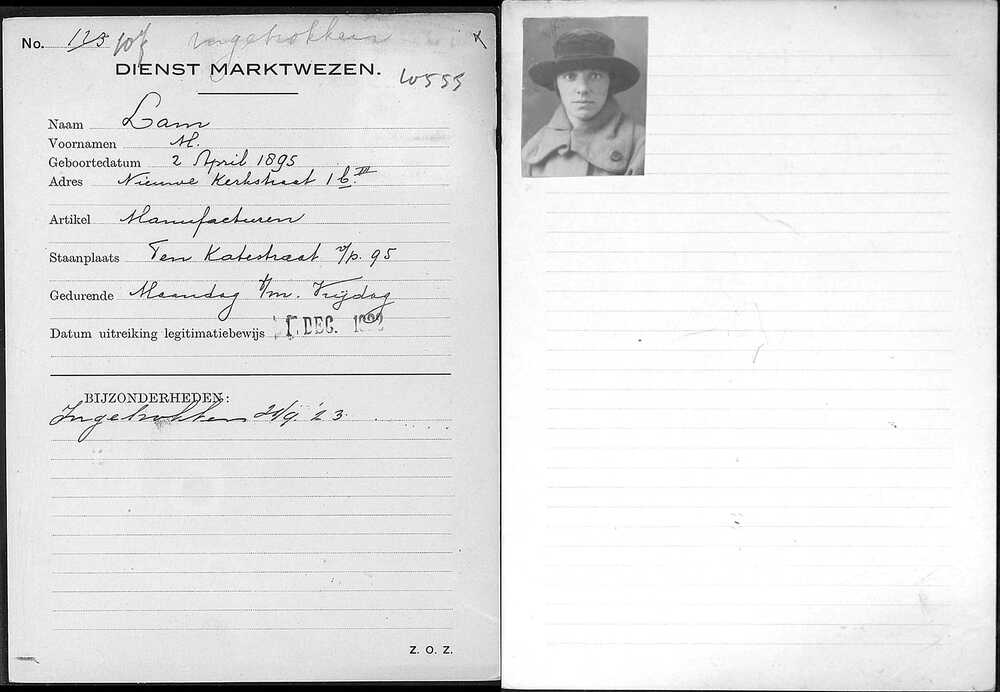 No. 113 107 Ingetrokken x
DIENST MARKTWEZEN.
10555
Naam Lam
Voornamen M.
Geboortedatum 2 April 1895
Adres Nieuwe Kerkstraat 1 b III
Artikel Manufacturen
Staanplaats Ten Katestraat v/p. 95
Gedurende Maandag t/m. Vrijdag
Datum uitreiking legitimatiebewijs 1. DEC. 1922
BIJZONDERHEDEN:
Ingetrokken 21/9 '23.
Z. O. Z.